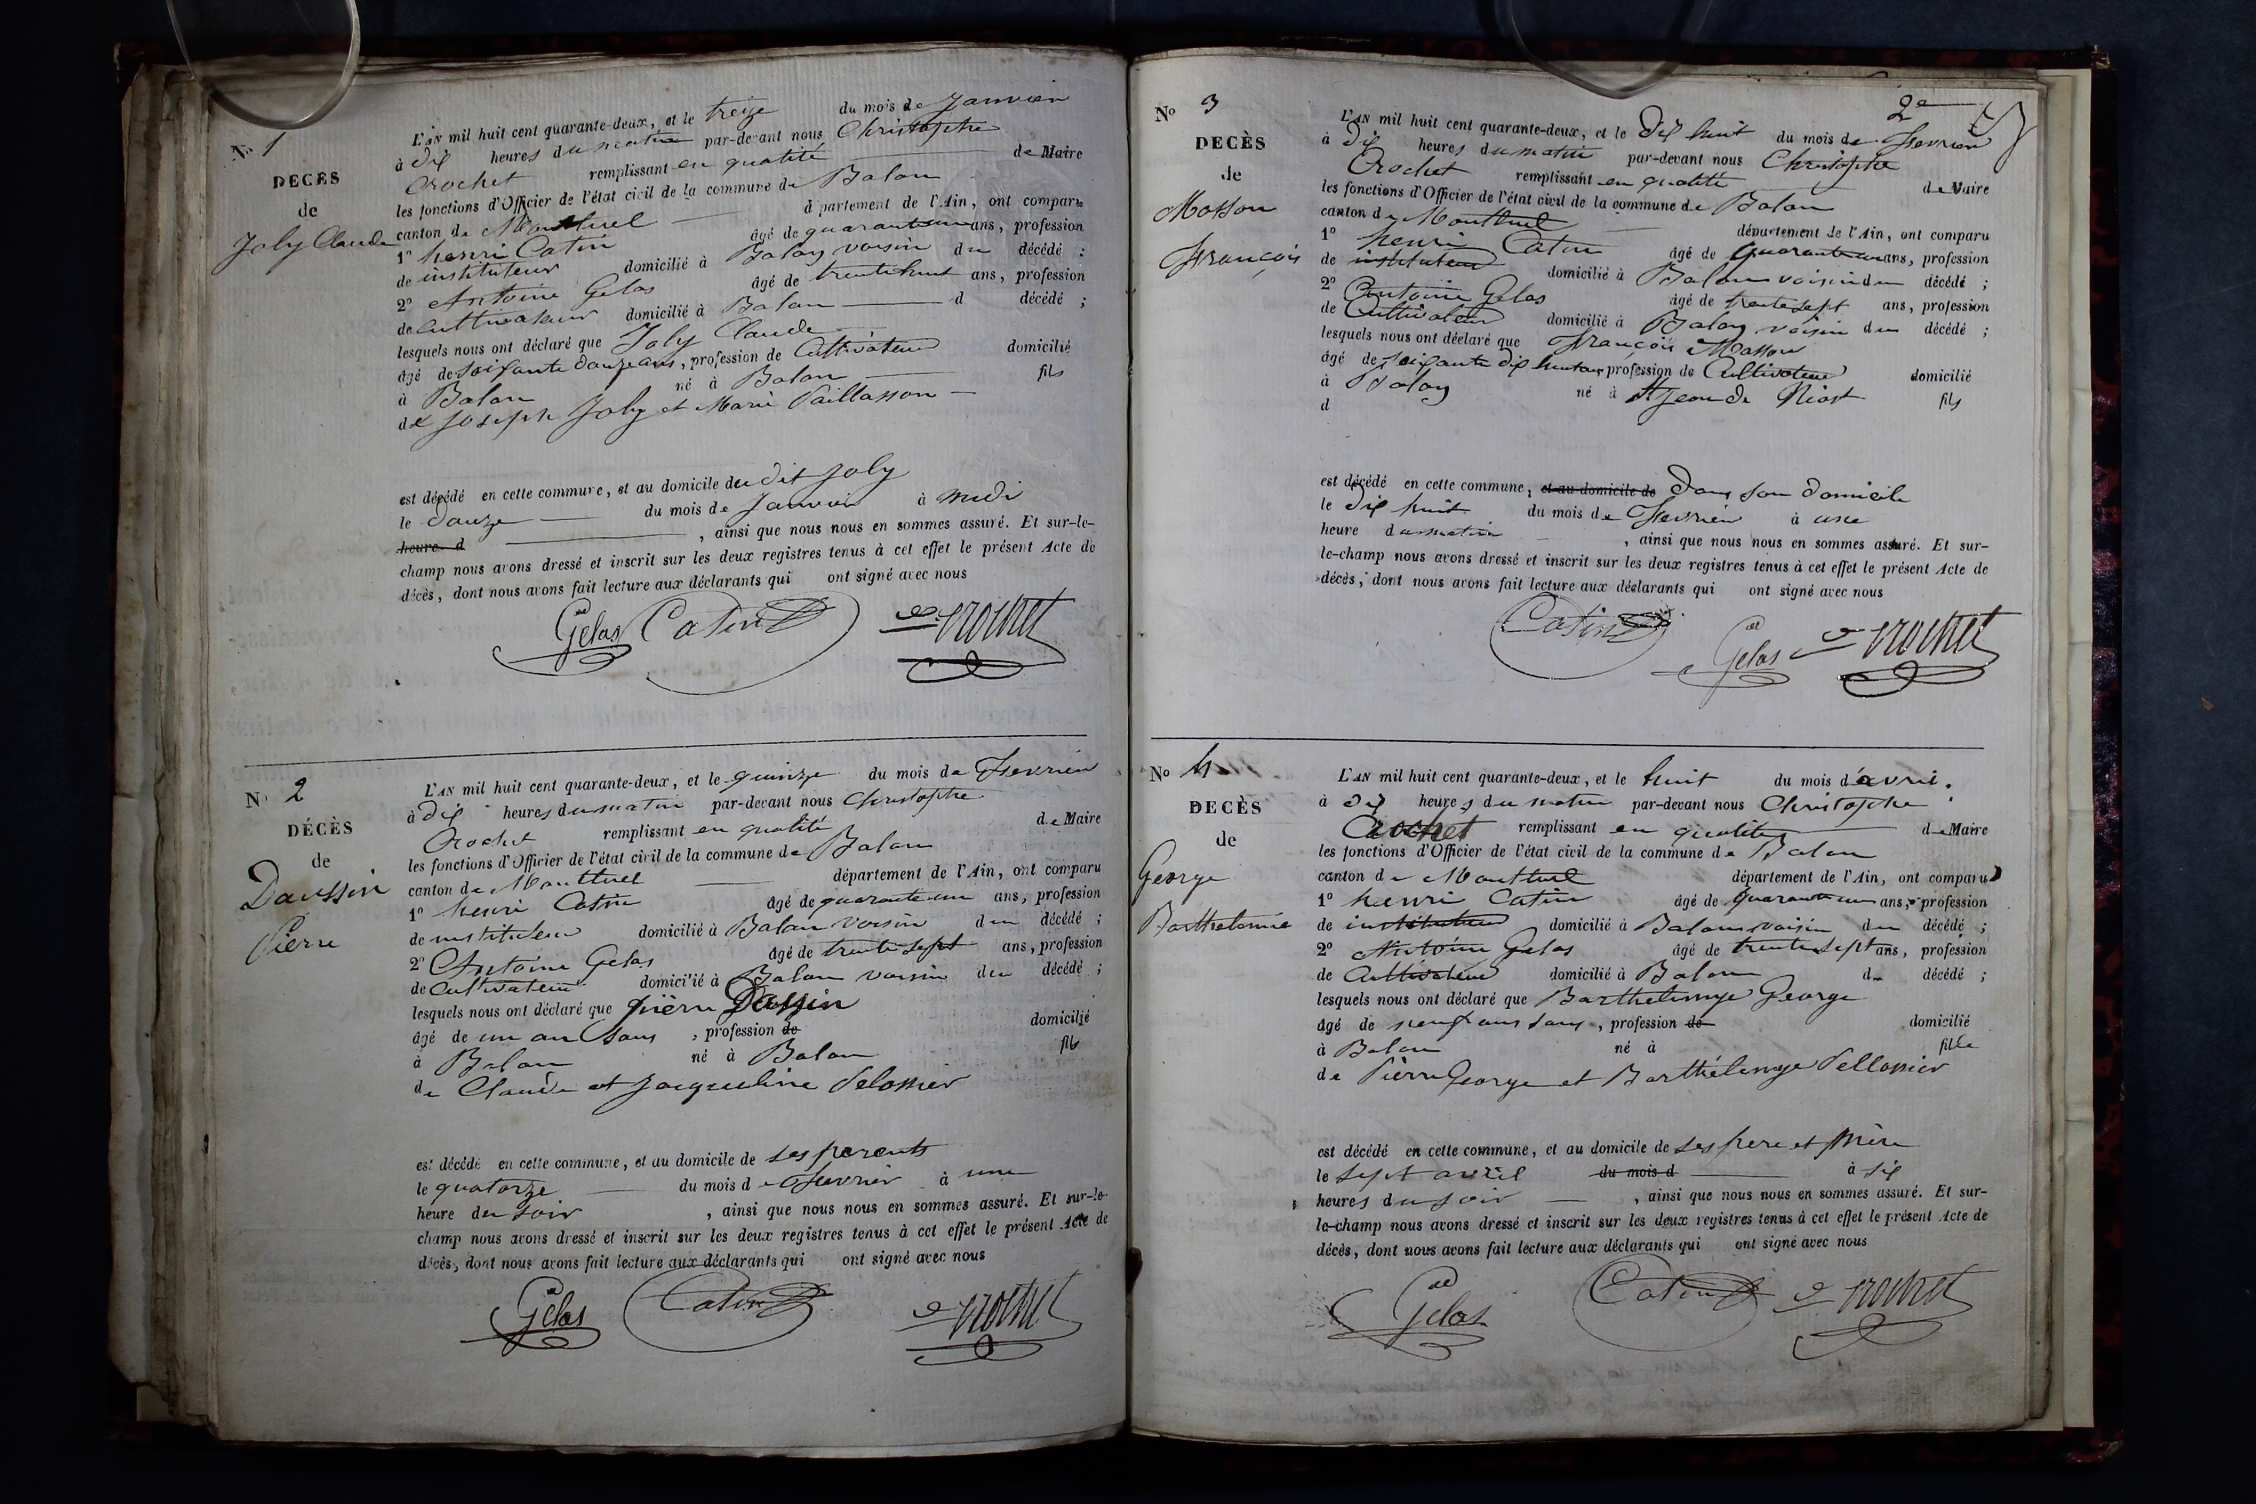 N° 1
DÉCÈS
de
Joly Claude
L'AN mil huit cent quarante-deux, et le treize du mois de Janvier
à dix heures du matin par-devant nous Christophe
Crochet remplissant en qualité de Maire
les fonctions d'Officier de l'état civil de la commune de Balan
canton de Montluel département de l'Ain, ont comparu
1° henri Catin âgé de quarante un ans, profession
de instituteur domicilié à Balan voisin du décédé ;
2° Antoine Gelas âgé de trente huit ans, profession
de Cultivateur domicilié à Balan d décédé ;
lesquels nous ont déclaré que Joly Claude
âgé de soixante douze ans, profession de Cultivateur domicilié
à Balan né à Balan fils
de Joseph Joly et Marie Paillasson
est décédé en cette commune, et au domicile du dit Joly
le douze du mois de Janvier à midi
heure d , ainsi que nous nous en sommes assuré. Et sur-le-
champ nous avons dressé et inscrit sur les deux registres tenus à cet effet le présent Acte de
décès, dont nous avons fait lecture aux déclarants qui ont signé avec nous
Gelas Catin Crochet
N° 2
DÉCÈS
de
Daussin
Pierre
L'AN mil huit cent quarante-deux, et le quinze du mois de Fevrier
à dix heures du matin par-devant nous Christophe
Crochet remplissant en qualité de Maire
les fonctions d'Officier de l'état civil de la commune de Balan
canton de Montluel département de l'Ain, ont comparu
1° henri Catin âgé de quarante un ans, profession
de instituteur domicilié à Balan voisin du décédé ;
2° Antoine Gelas âgé de trente sept ans, profession
de Cultivateur domicilié à Balan voisin du décédé ;
lesquels nous ont déclaré que pierre
âgé de un an sans , profession de domicilié
à Balan né à Balan fils
de Claude et Jacqueline Pelossier
est décédé en cette commune, et au domicile de ses parents
le quatorze du mois de Fevrier à une
heure du soir , ainsi que nous nous en sommes assuré. Et sur-le-
champ nous avons dressé et inscrit sur les deux registres tenus à cet effet le présent Acte de
décès, dont nous avons fait lecture aux déclarants qui ont signé avec nous
Gelas Catin Crochet
2e
N° 3
DÉCÈS
de
Mosson
François
L'AN mil huit cent quarante-deux, et le dix huit du mois de Fevrier
à dix heures du matin par-devant nous Christophe
Crochet remplissant en qualité de Maire
les fonctions d'Officier de l'état civil de la commune de Balan
canton de Montluel département de l'Ain, ont comparu
1° henri Catin âgé de quarante un ans, profession
de instituteur domicilié à Balan voisin du décédé ;
2° Antoine Gelas âgé de trente sept ans, profession
de Cultivateur domicilié à Balan voisin du décédé ;
lesquels nous ont déclaré que François Mosson
âgé de soixante dix huit ans, profession de Cultivateur domicilié
à Balan né à St Jean de Niost fils
d
est décédé en cette commune, et au domicile de dans son domicile
le dix huit du mois de Fevrier à une
heure du matin , ainsi que nous nous en sommes assuré. Et sur-
le-champ nous avons dressé et inscrit sur les deux registres tenus à cet effet le présent Acte de
décès, dont nous avons fait lecture aux déclarants qui ont signé avec nous
Catin Gelas Crochet
N° 4
DÉCÈS
de
George
Barthelemie
L'AN mil huit cent quarante-deux, et le huit du mois d'avril
à dix heures du matin par-devant nous Christophe
Crochet remplissant en qualité de Maire
les fonctions d'Officier de l'état civil de la commune de Balan
canton de Montluel département de l'Ain, ont comparu
1° henri Catin âgé de quarante un ans, profession
de instituteur domicilié à Balan voisin du décédé ;
2° Antoine Gelas âgé de trente sept ans, profession
de Cultivateur domicilié à Balan d décédé ;
lesquels nous ont déclaré que Barthelemye George
âgé de neuf ans sans , profession de domicilié
à Balan né à fille
de Pierre George et Barthélemye Pellossier
est décédé en cette commune, et au domicile de ses pere et mère
le sept avril du mois d à six
heures du soir , ainsi que nous nous en sommes assuré. Et sur-
le-champ nous avons dressé et inscrit sur les deux registres tenus à cet effet le présent Acte de
décès, dont nous avons fait lecture aux déclarants qui ont signé avec nous
Gelas Catin Crochet